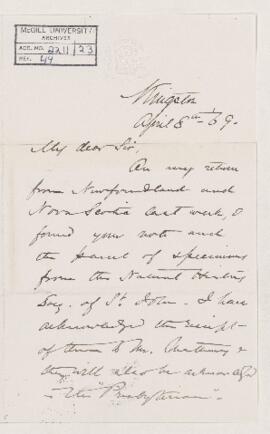 McGILL UNIVERSITY
ARCHIVES
ACC. NO. 2211/23
REF. 49
Kingston
April 8th /69.
My dear Sir,
On my return
from Newfoundland and
Nova Scotia last week, I
found your note and
the parcel of specimens
from the Natural History
Socy. of St. John. I have
acknowledged the receipt
of them to Mr. &
they will also be acknowledged
in the "Presbyterian".